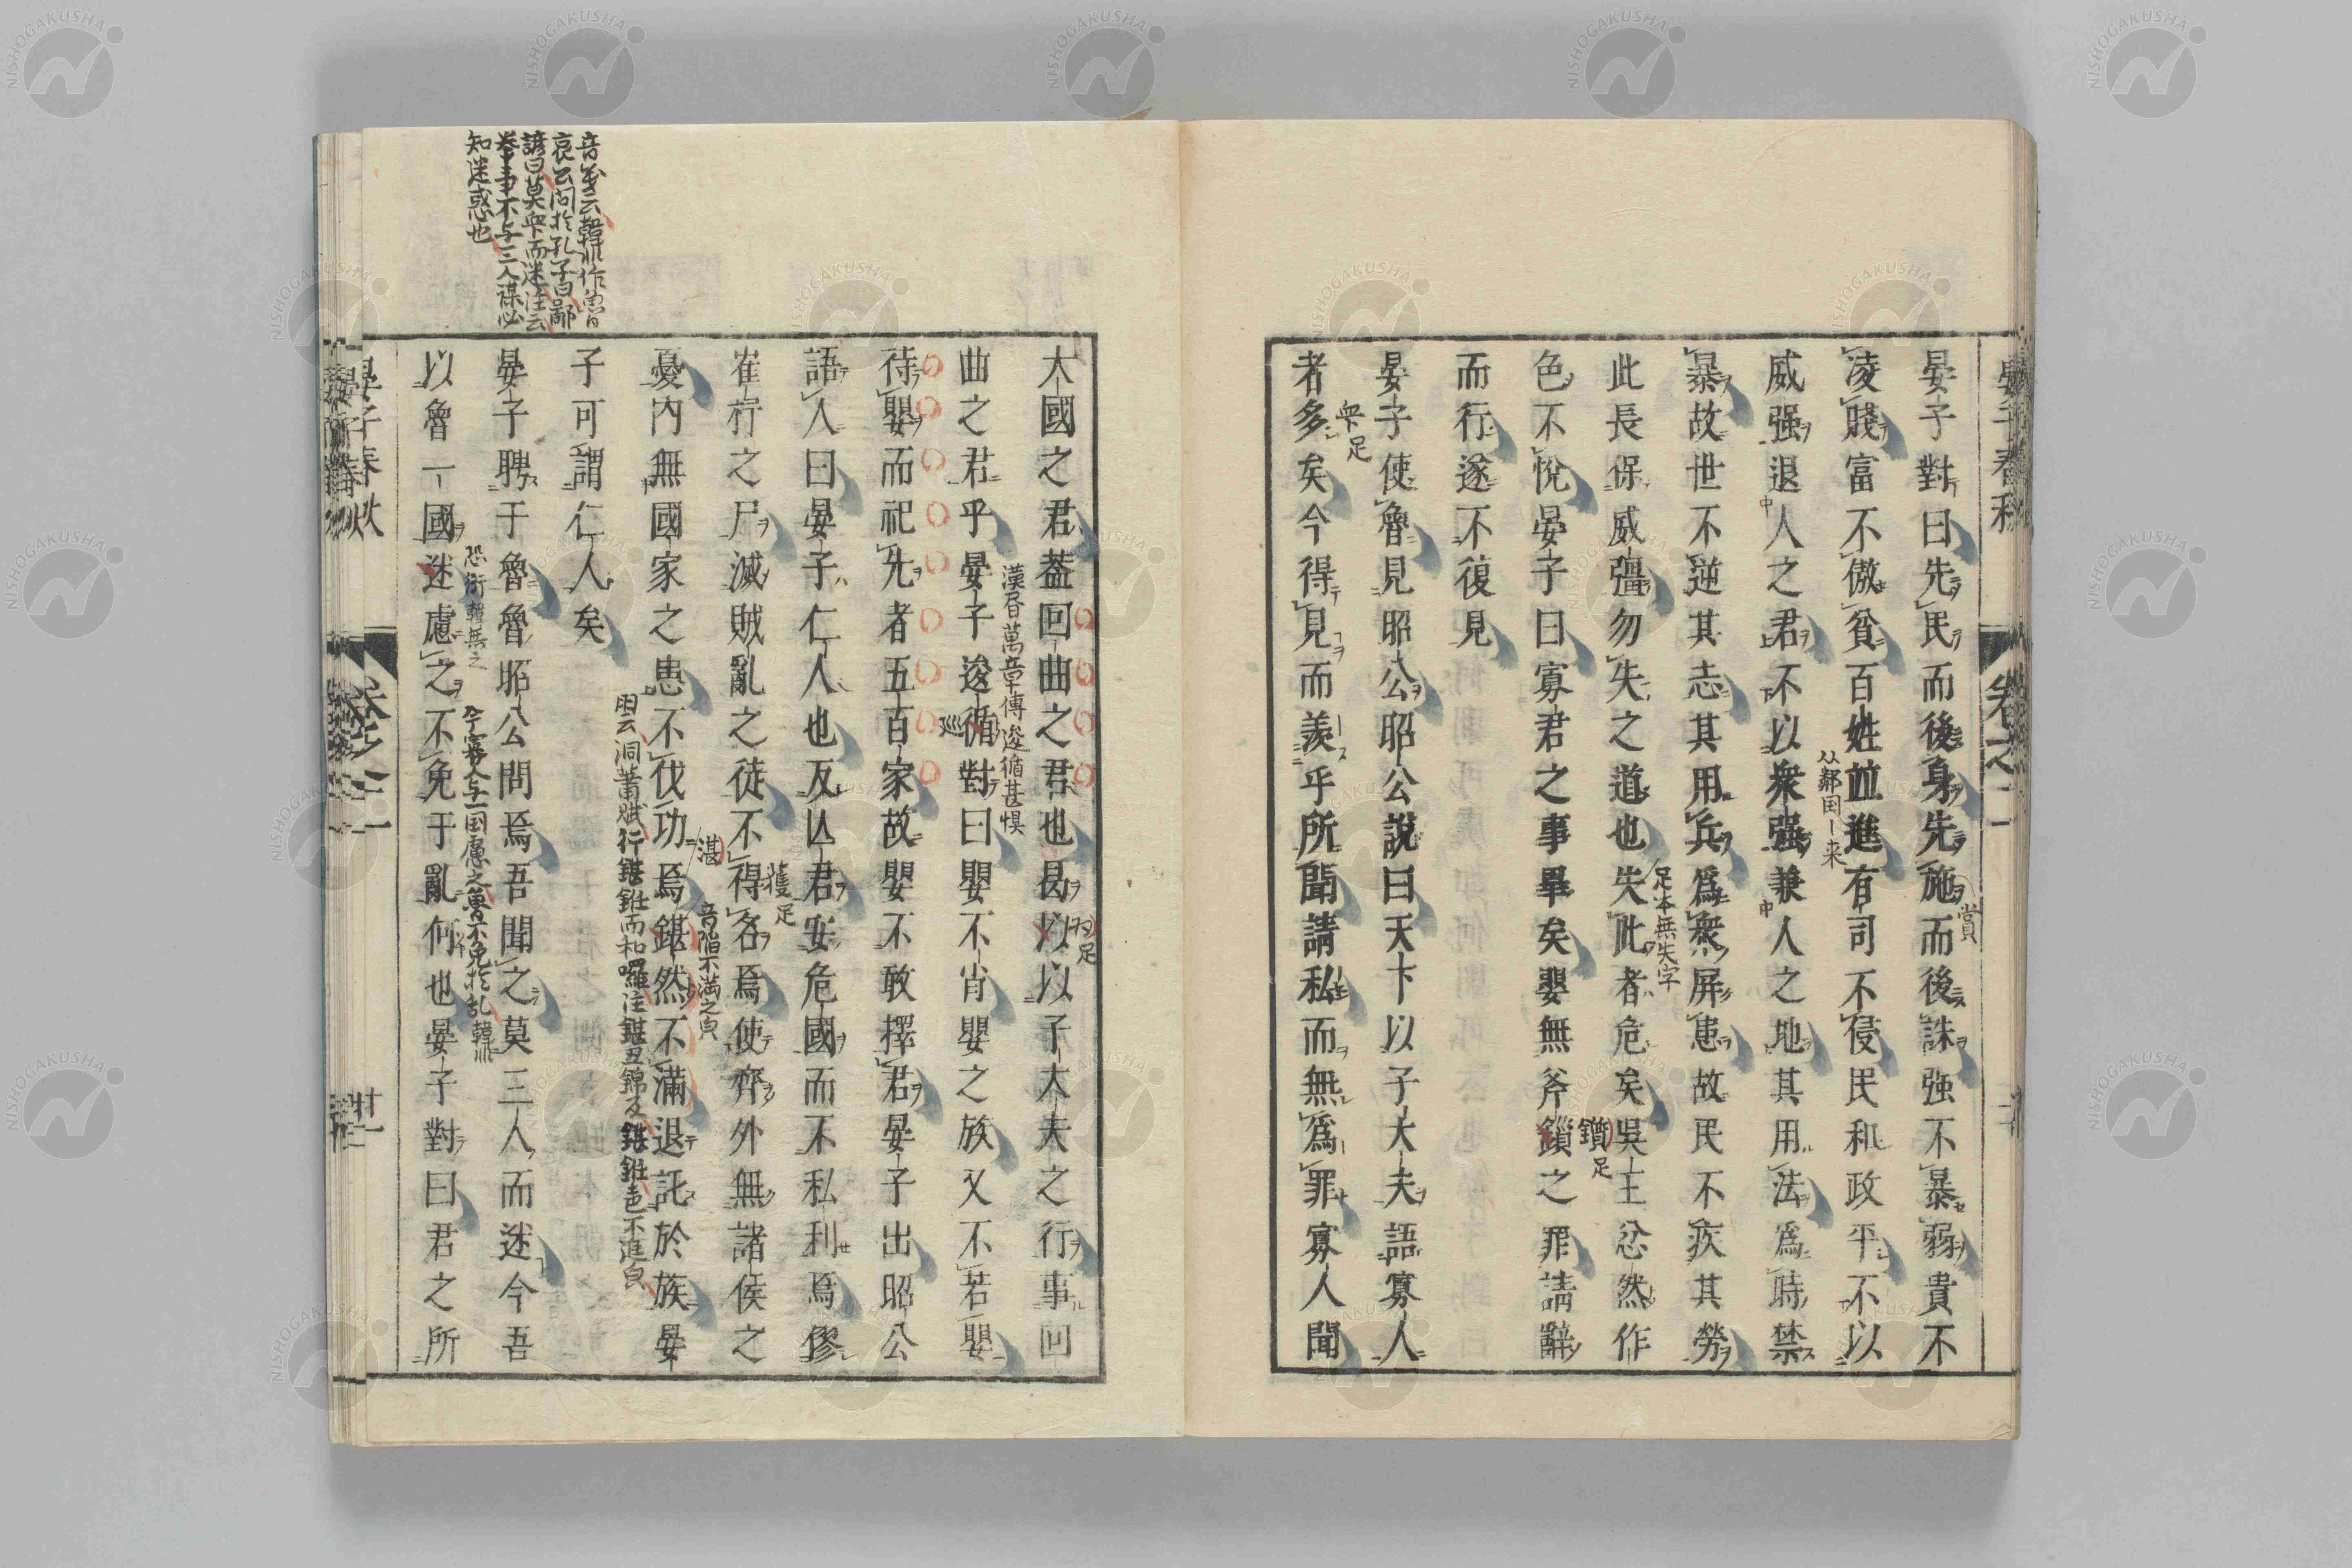 晏子對曰先民而後身先施而後誅强不暴弱貴不
凌賤富不傲貧百姓並進有司不侵民和政平不以
威强退人之君不以衆强兼人之地其用法爲時禁
暴故世不逆其志其用兵爲衆屏患故民不疾其勞
此長保威彊勿失之道也失此者危矣吳王忿然作
色不悅晏子曰寡君之事畢矣嬰無斧鑕之罪請辭
而行遂不復見
晏子使魯見昭公昭公說曰天下以子大夫語寡人
者多矣今得見而羨乎所聞請私而無爲罪寡人聞
大國之君蓋回曲之君也曷以以子大夫之行事回
曲之君乎晏子逡循對曰嬰不肖嬰之族又不若嬰
待嬰而祀先者五百家故嬰不敢擇君晏子出昭公
語人曰晏子仁人也反亾君安危國而不私利焉僇
崔杼之尸滅賊亂之徒不得名焉使齊外無諸侯之
憂內無國家之患不伐功焉鍖然不滿退託於族晏
子可謂仁人矣
晏子聘于魯魯昭公問焉吾聞之莫三人而迷今吾
以魯一國迷慮之不免于亂何也晏子對曰君之所
賞
从鄰国一來
足本無失字
鑕足
漢昏萬章傳逡循甚惧
巡
獲足
湛
音堪不満之皃
今寡人与一国慮之魯不免於乱 韓非
恐衍韓無之
音義云韓非作魯
哀公問於孔子曰鄙
諺曰莫衆而迷注云
挙事不与三人謀必
知迷惑也
晏子春秋
卷之二
NISHOGAKUSHA